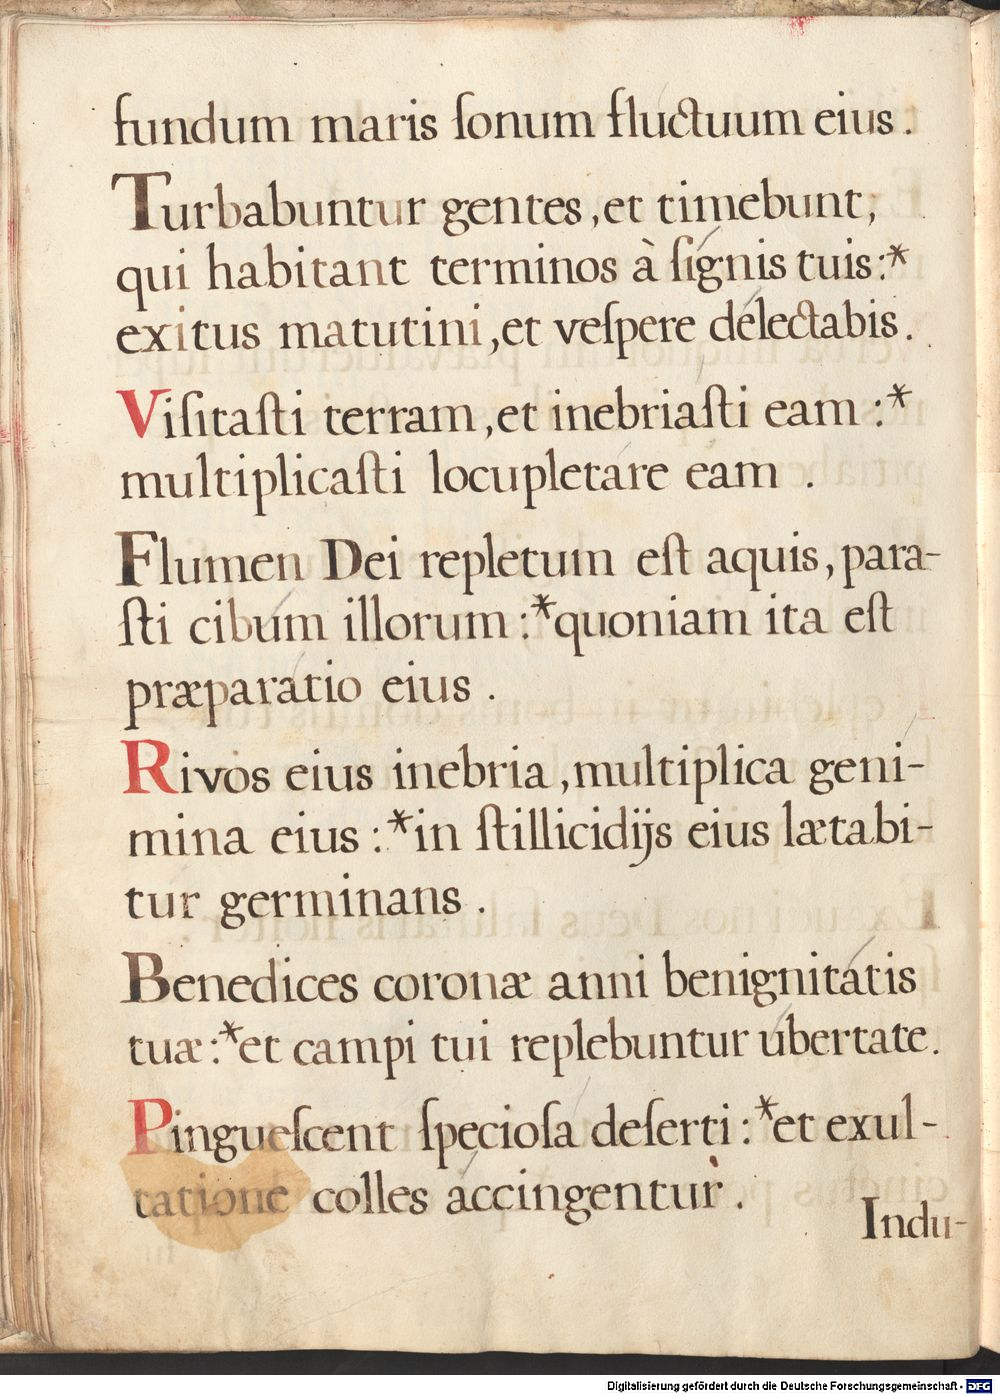 fundum maris ſonum fluctuum eius .
Turbabuntur gentes, et timebunt,
qui habitant terminos à ſignis tuis :*
exitus matutini, et veſpere délectabis .
Viſitaſti terram, et inebriaſti eam :*
multiplicaſti locupletáre eam .
Flumen Dei repletum eſt aquis, para-
ſti cibúm illorum :* quoniam ita eſt
præparátio eius .
Rivos eius inebria, multiplica geni-
mina eius :* in ſtillicidijs eius lætabi-
tur germinans .
Benedices coronæ anni benignitátis
tuæ :* et campi tui replebuntur úbertate .
Pingueſcent ſpecioſa deſerti :* et exul-
tatione colles accingentur .
Indu-
Digitalisierung gefördert durch die Deutsche Forschungsgemeinschaft - DFG